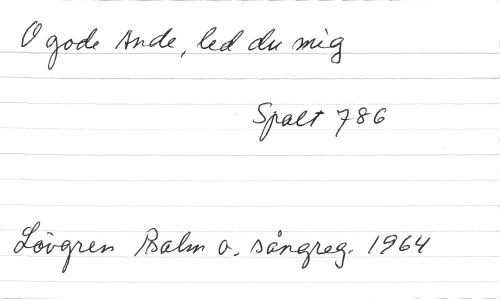 O gode Ande, led du mig
Spalt 786
Lövgren Psalm o. sångreg. 1964